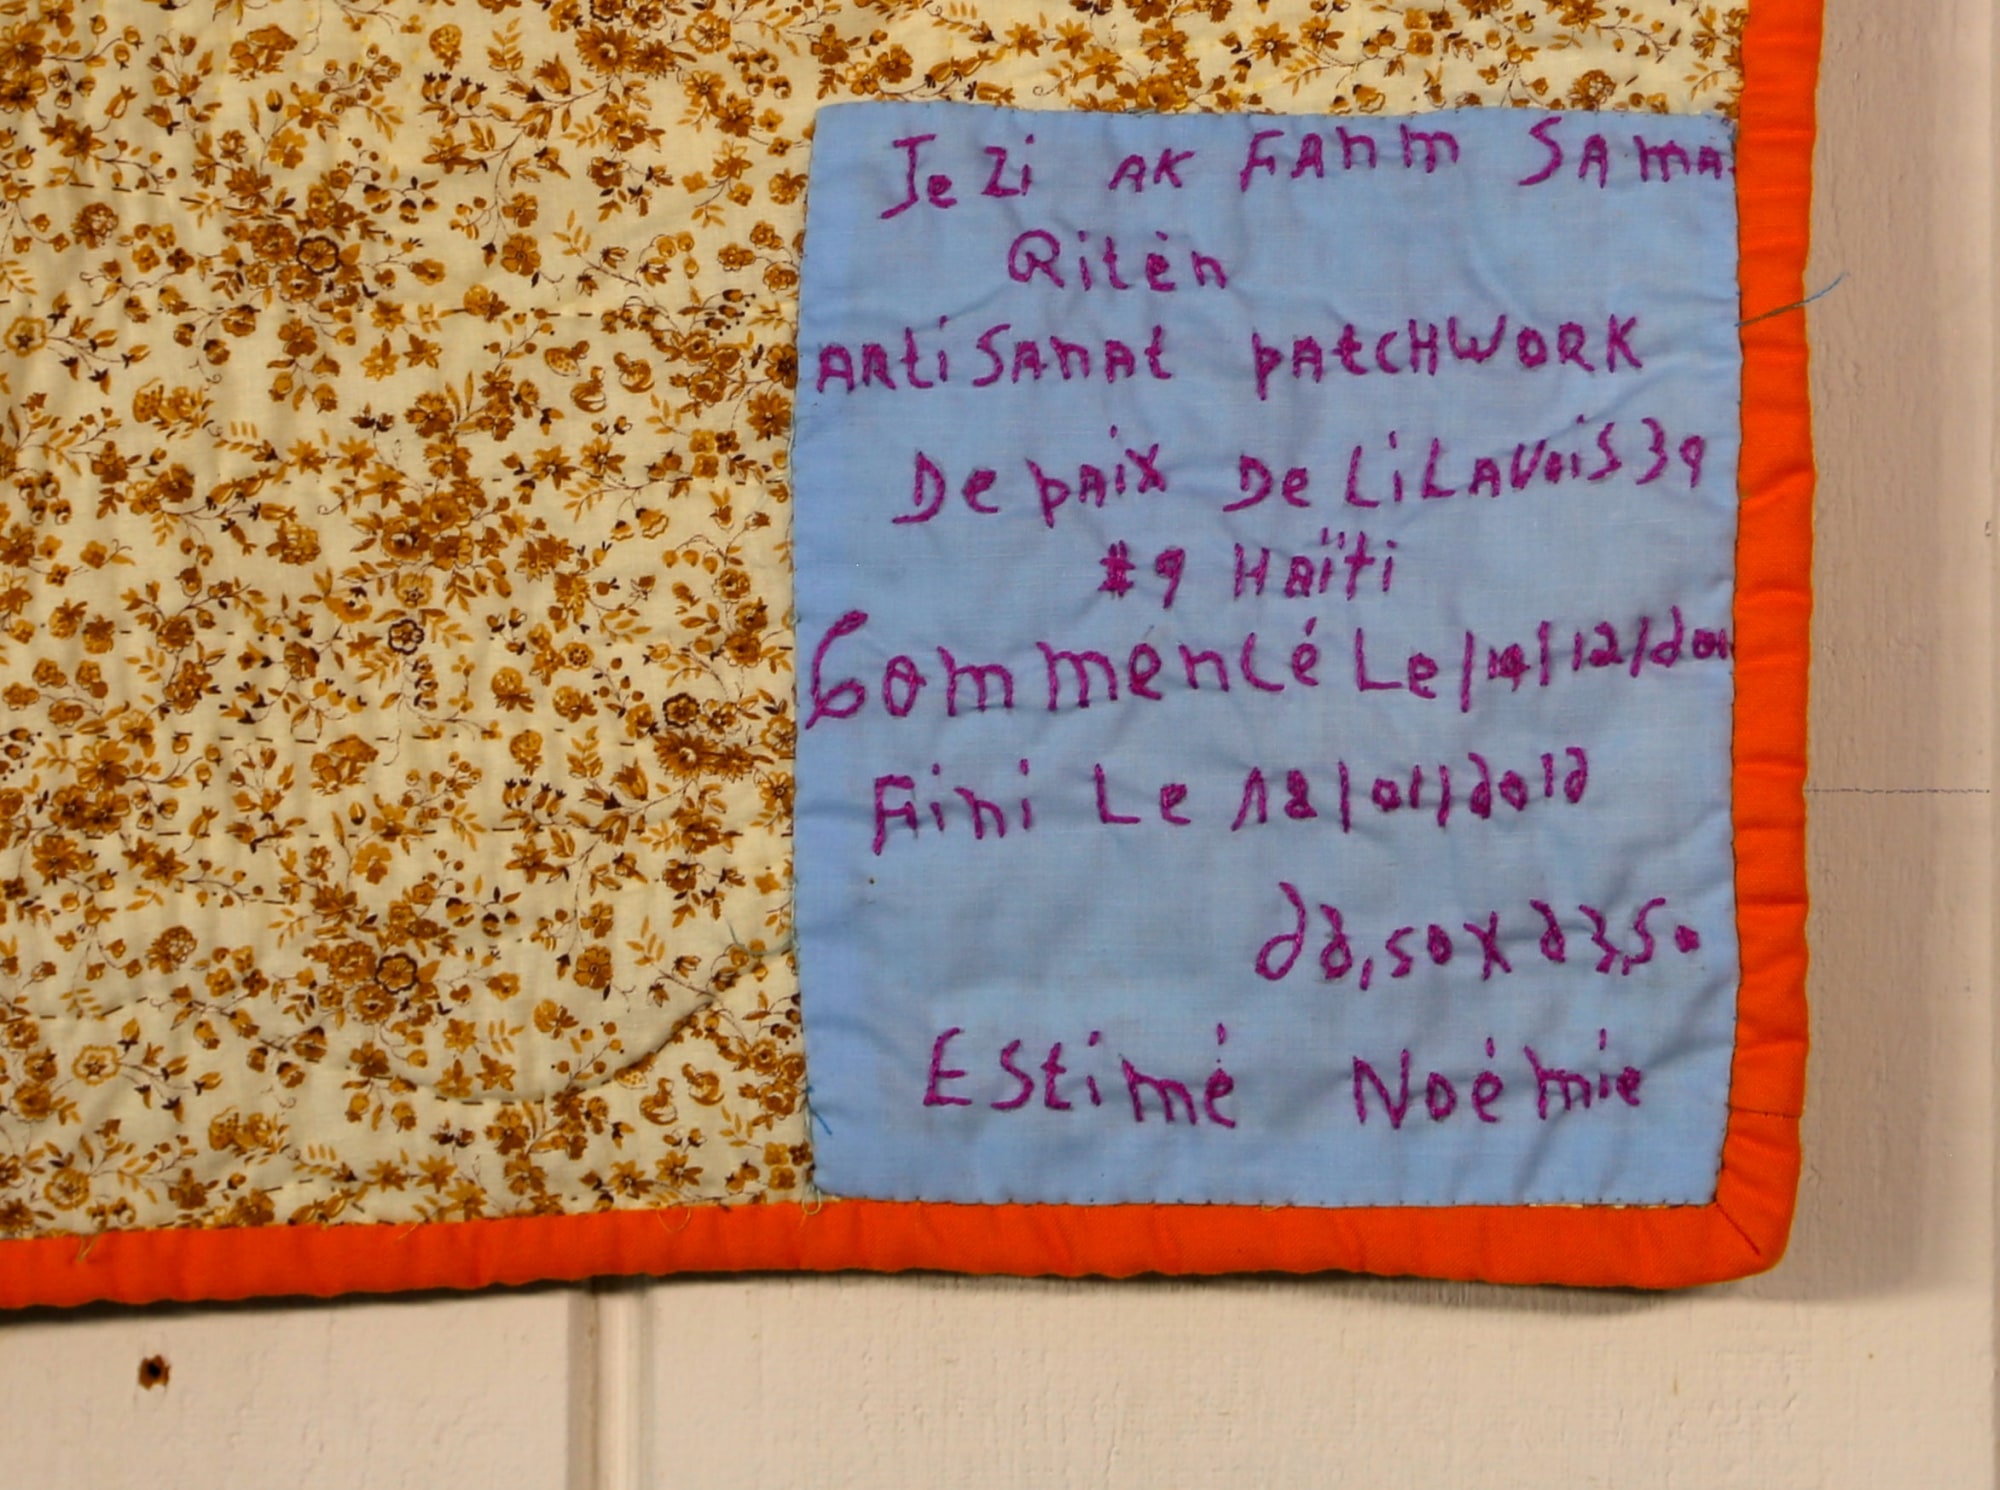 Jezi AK FAnm SAmA
Ritèn
ARtiSAnAt pAtCHWORK
De pAix De LiLAVois 39
#9 HAïti
Commencé Le /14/12/201
Fini Le 12/01/2012
22,50 x 23,50
EStimé Noémie